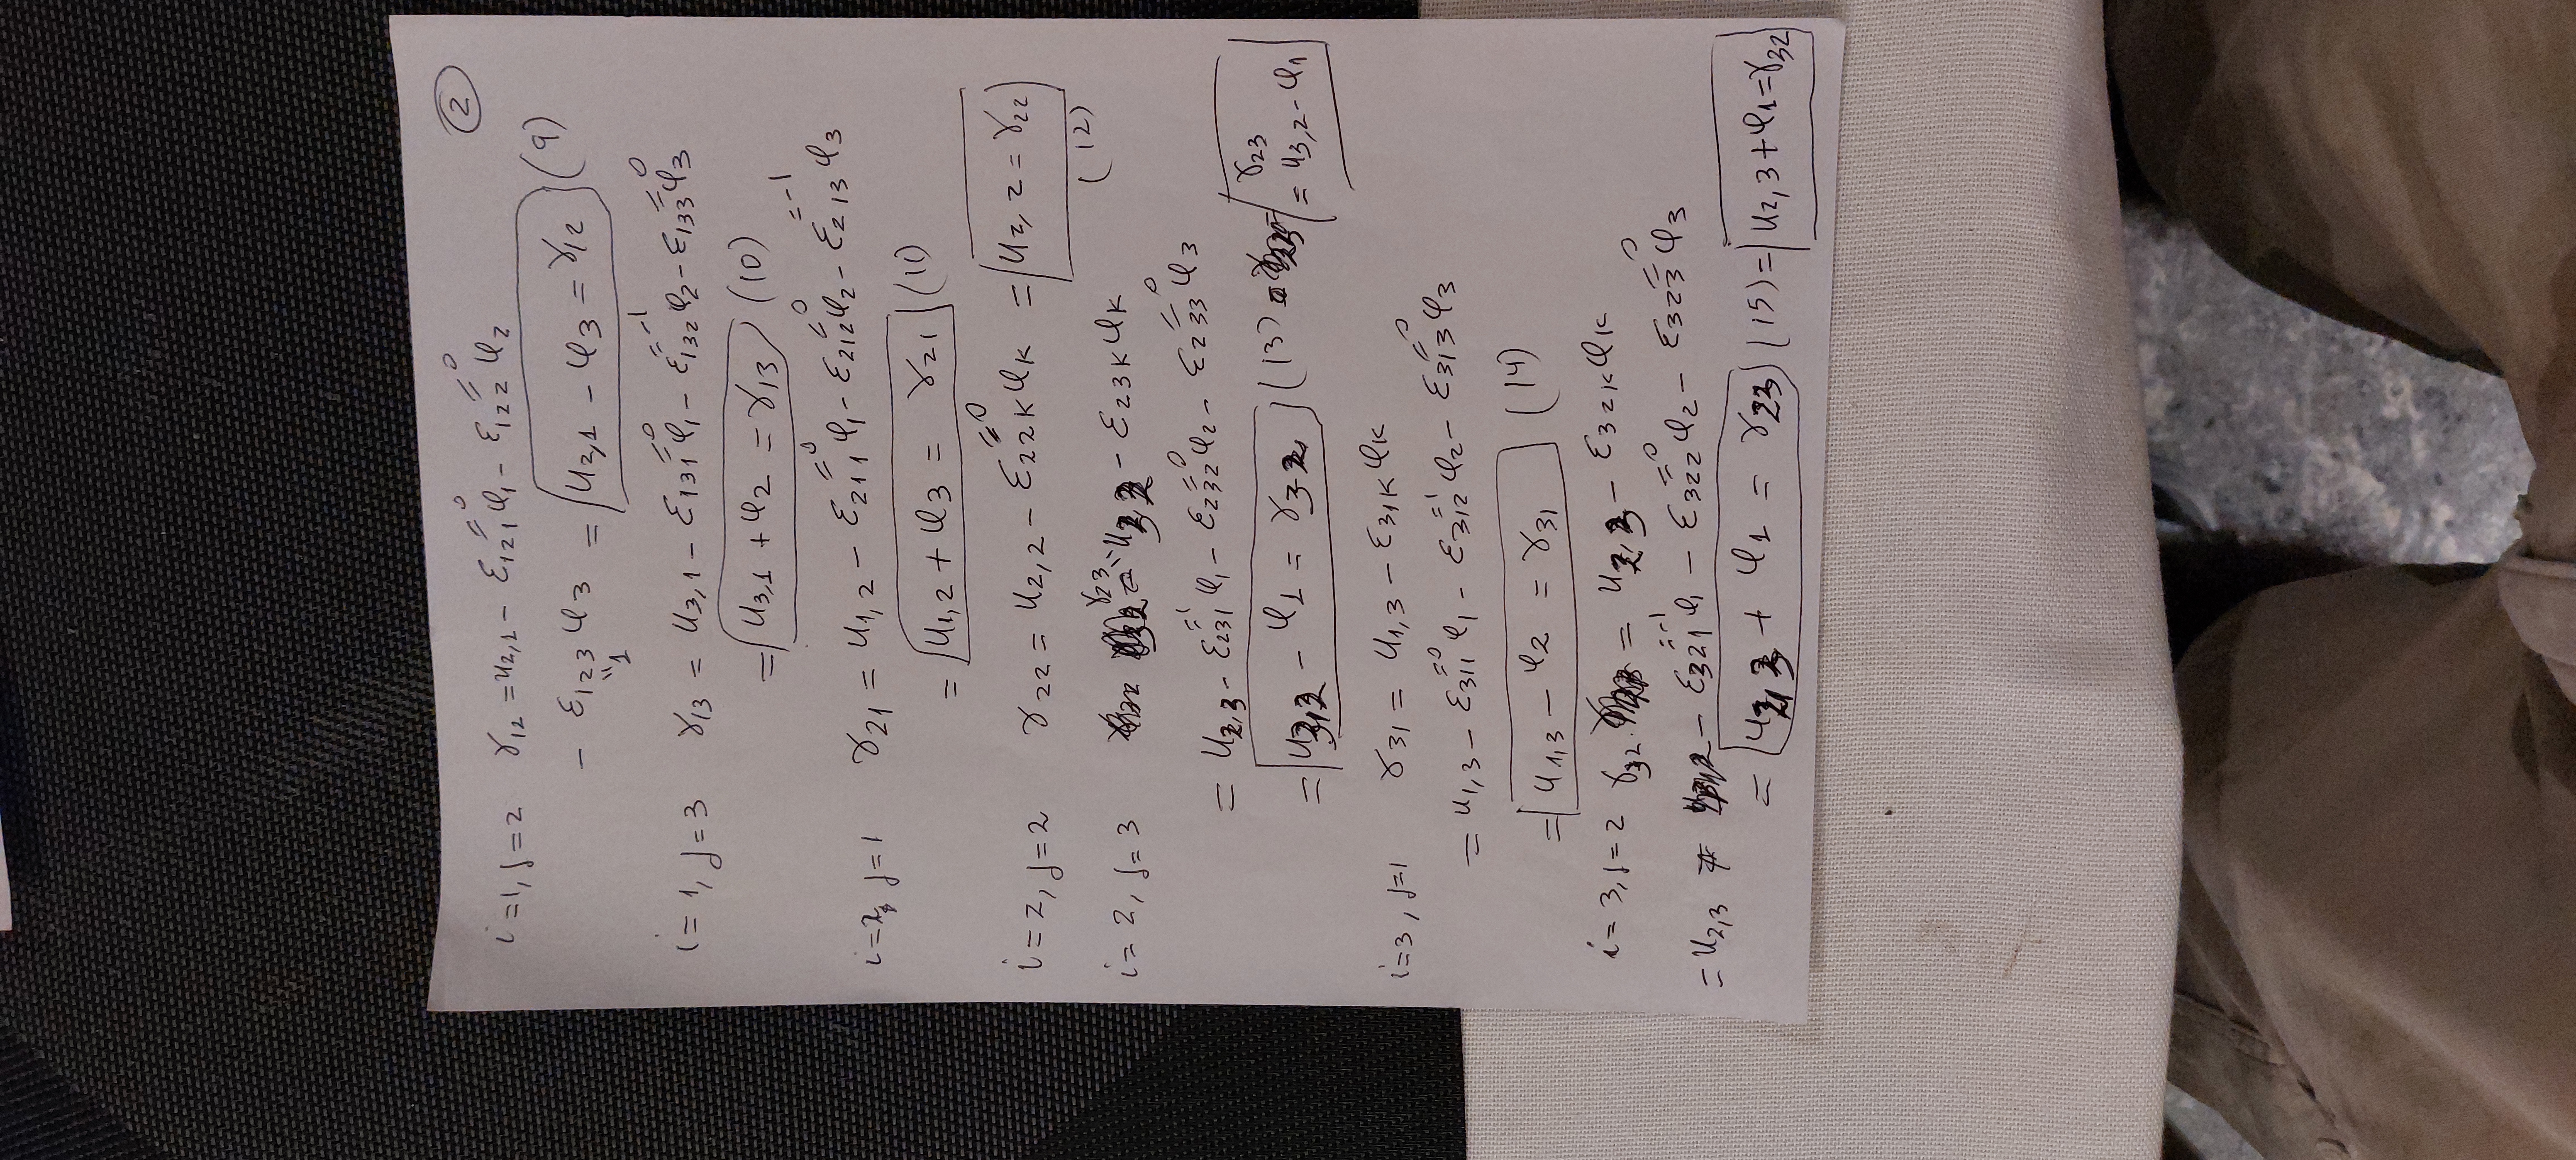 ②
i=1, j=2 γ12 = u2,1 - ε121^{=0} φ1 - ε122^{=0} φ2
- ε123 φ3 = u2,1 - φ3 = γ12 (9)
"1
i=1, j=3 γ13 = u3,1 - ε131^{=0} φ1 - ε132^{=-1} φ2 - ε133^{=0} φ3
= u3,1 + φ2 = γ13 (10)
i=2, j=1 γ21 = u1,2 - ε211^{=0} φ1 - ε212^{=0} φ2 - ε213^{=-1} φ3
= u1,2 + φ3 = γ21 (11)
i=2, j=2 γ22 = u2,2 - ε22K^{=0} φK = u2,2 = γ22
(12)
i=2, j=3 γ23 = u3,2 - ε23K φK
= u2,3 - ε231^{=1} φ1 - ε232^{=0} φ2 - ε233^{=0} φ3
= u3,2 - φ1 = γ32 (13) γ23 = u3,2 - φ1
i=3, j=1 γ31 = u1,3 - ε31K φK
= u1,3 - ε311^{=0} φ1 - ε312^{=1} φ2 - ε313^{=0} φ3
= u1,3 - φ2 = γ31 (14)
i=3, j=2 γ32 = u2,3 - ε32K φK
= u2,3 - ε321^{=-1} φ1 - ε322^{=0} φ2 - ε323^{=0} φ3
= u2,3 + φ1 = γ23 (15) = u2,3 + φ1 = γ32